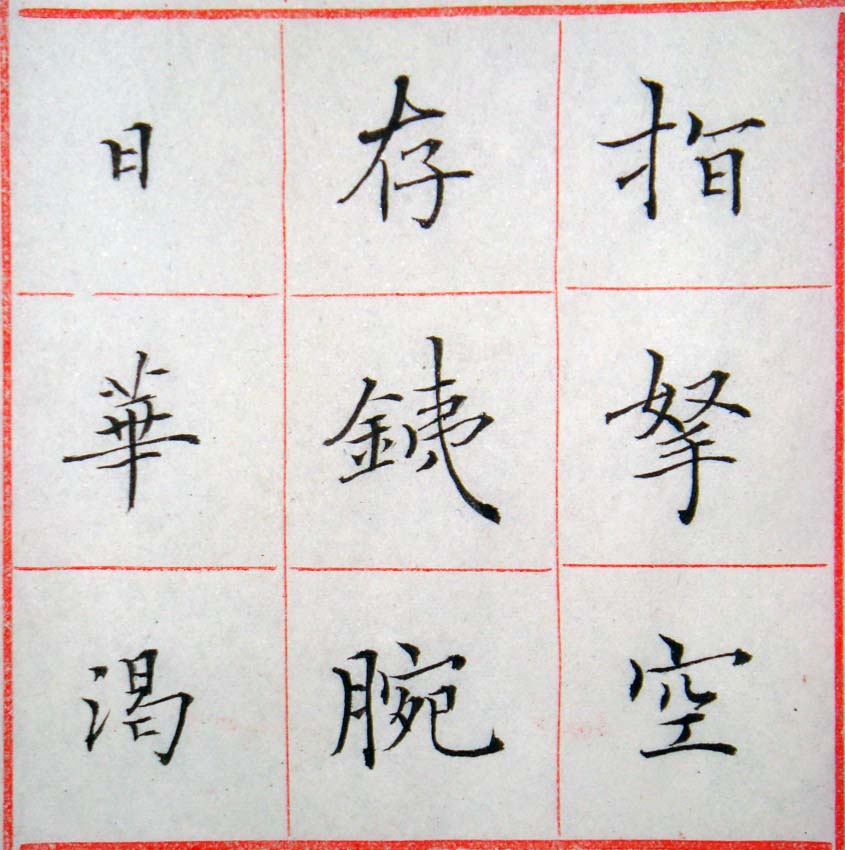 指拏空
存銕腕
日華渴